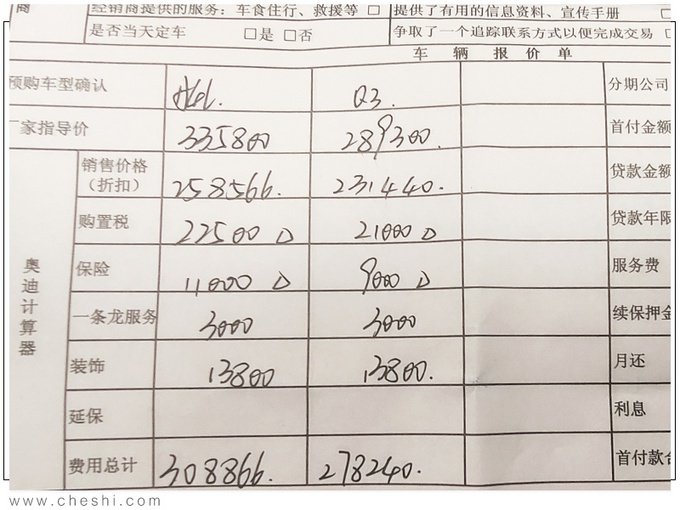 商 经销商提供的服务：车食住行、救援等 □ 提供了有用的信息资料、宣传手册
是否当天定车 □是 □否 争取了一个追踪联系方式以便完成交易
车 辆 报 价 单
预购车型确认 Q3. 分期公司
厂家指导价 335800 289300. 首付金额
销售价格（折扣） 258566. 231440. 贷款金额
购置税 22500 21000 贷款年限
奥迪计算器
保险 11000 9000 服务费
一条龙服务 3000 3000 续保押金
装饰 13800 13800. 月还
延保 利息
费用总计 308866. 278240. 首付款合
www.cheshi.com